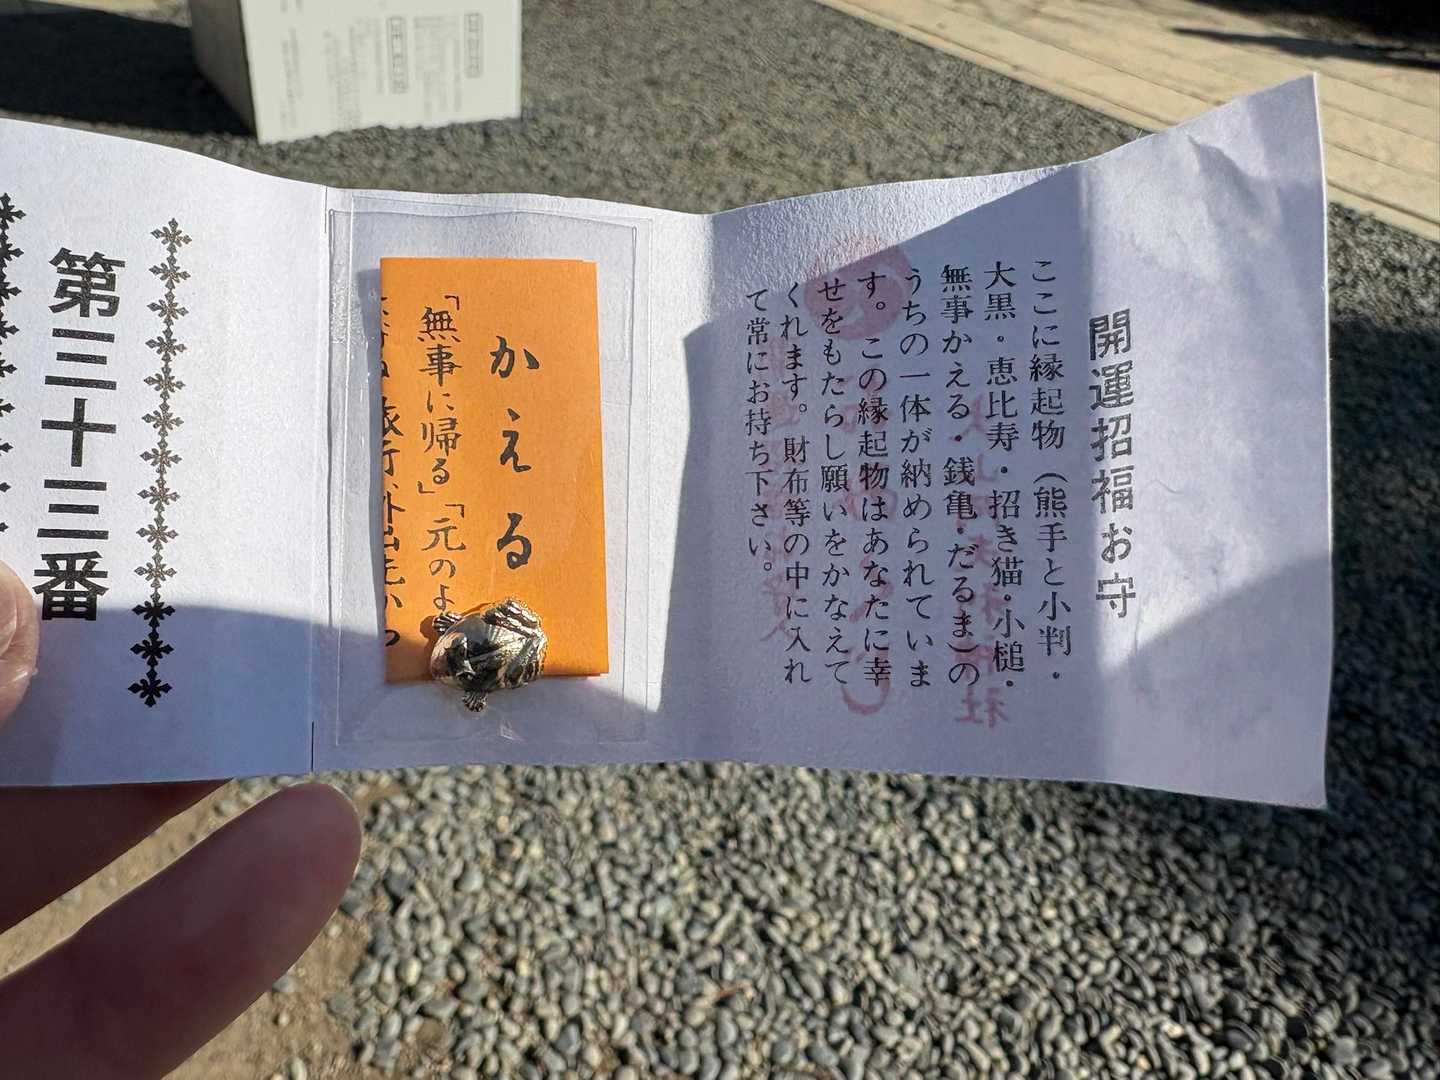 開運招福お守
ここに縁起物（熊手と小判・
大黒・恵比寿・招き猫・小槌・
無事かえる・銭亀・だるま）の
うちの一体が納められていま
す。この縁起物はあなたに幸
せをもたらし願いをかなえて
くれます。財布等の中に入れ
て常にお持ち下さい。
かえる
「無事に帰る」「元のよ
旅行、外出先から
第三十三番